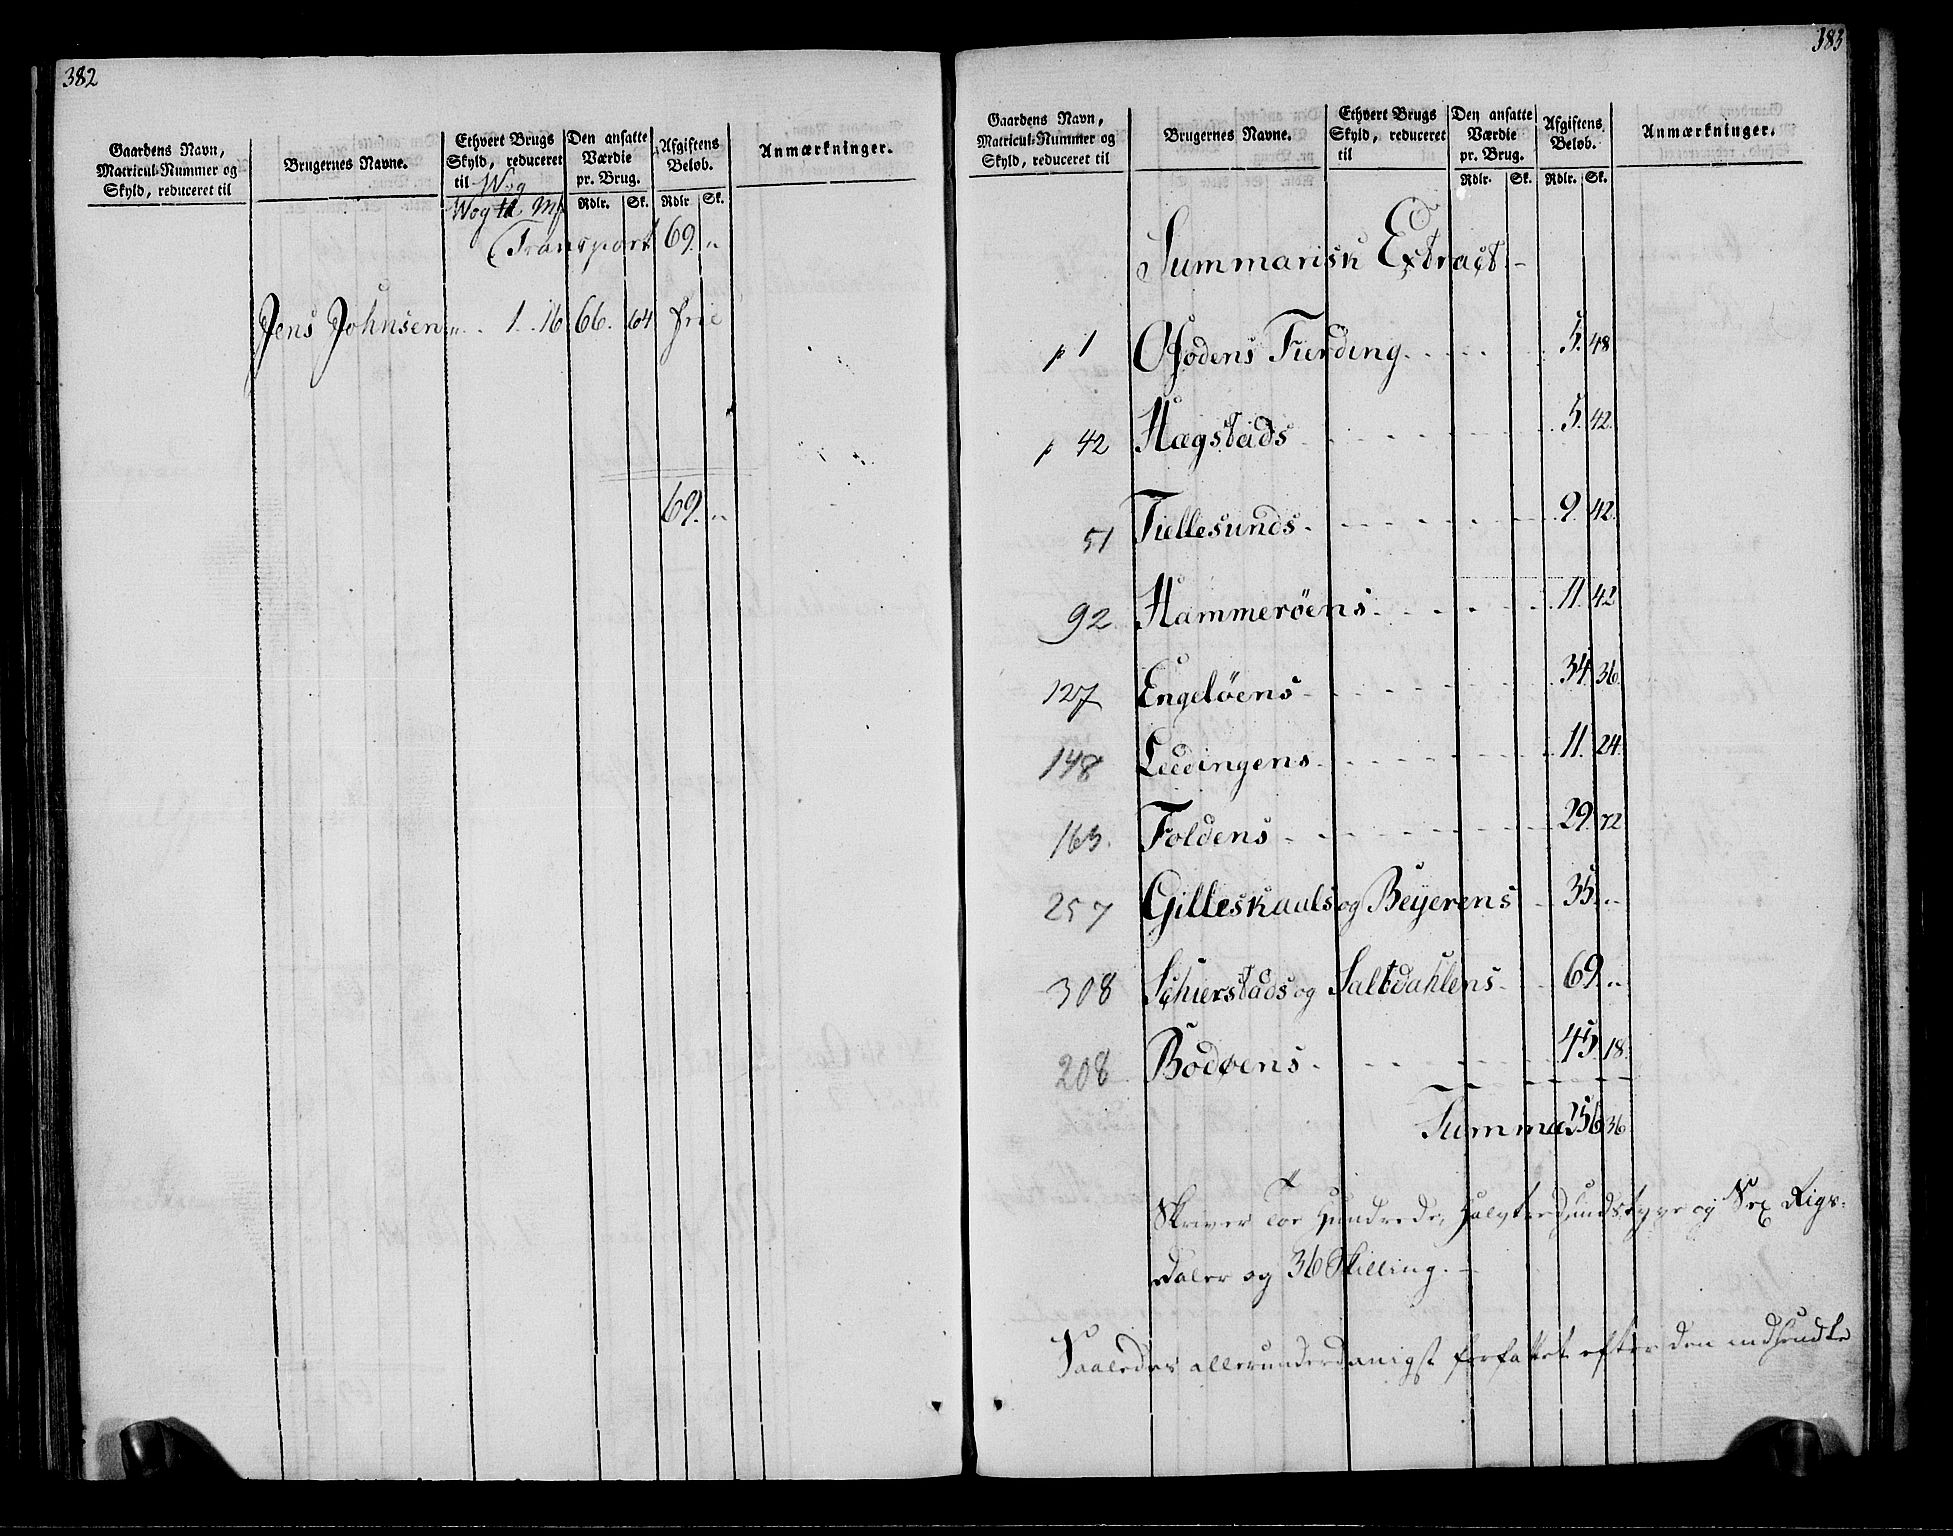 382
Gaardens Navn, Matricul-Nummer og Skyld, reduceret til
Brugernes Navne.
Ethvert Brugs Skyld, reduceret til Wog
Den ansatte Værdie pr. Brug.
Afgiftens Beløb.
Anmærkninger.
Wog # Mk Rdlr. Sk. Rdlr Sk.
Transport 69. "
Jens Johnsen " 1 16 66. 64 frie
69. "
383
Gaardens Navn, Matricul-Nummer og Skyld, reduceret til
Brugernes Navne.
Ethvert Brugs Skyld, reduceret til
Den ansatte Værdie pr. Brug.
Afgiftens Beløb.
Anmærkninger.
Rdlr. Sk. Rdlr. Sk.
Summarisk Extract
p 1 Ofodens Fierding 5. 48
p 42 Hægstads 5. 42
51 Tiellesunds 9. 42
92 Hammeröens 11. 42
127 Engelöens 34. 36
148 Lødingens 11. 24
163. Foldens 29. 72
257 Gilleskaals og Beyerens 35. "
308 Schierstads og Saltdahlens 69. "
208 Bodøens 45. 18.
Summa 256 36
Skriver Toe Hundrede, Halvtredsindstyve og Sex Rigs-
Daler og 36 Skilling.
Saaledes allerunderdanigst forfattet efter den indsendte